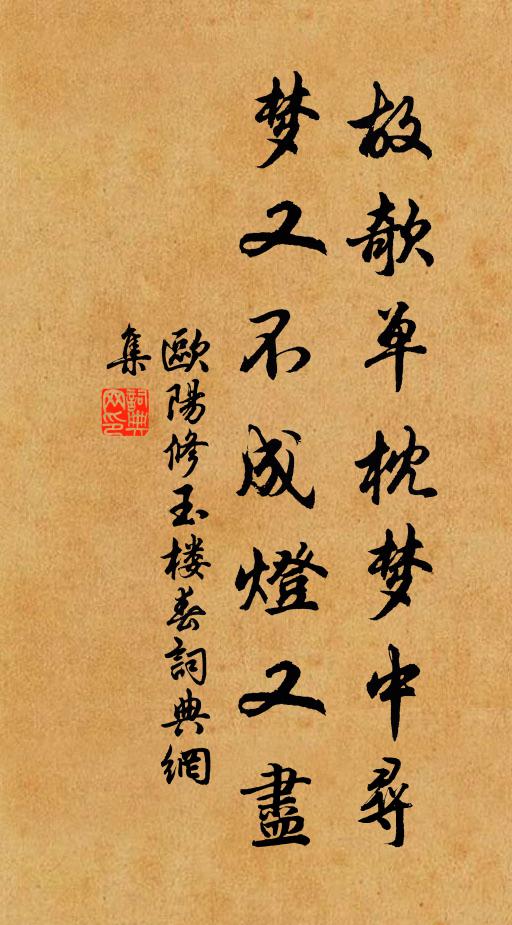 故欹单枕梦中尋
梦又不成燈又盡
歐陽修玉楼春詞典網
集
詞典網印